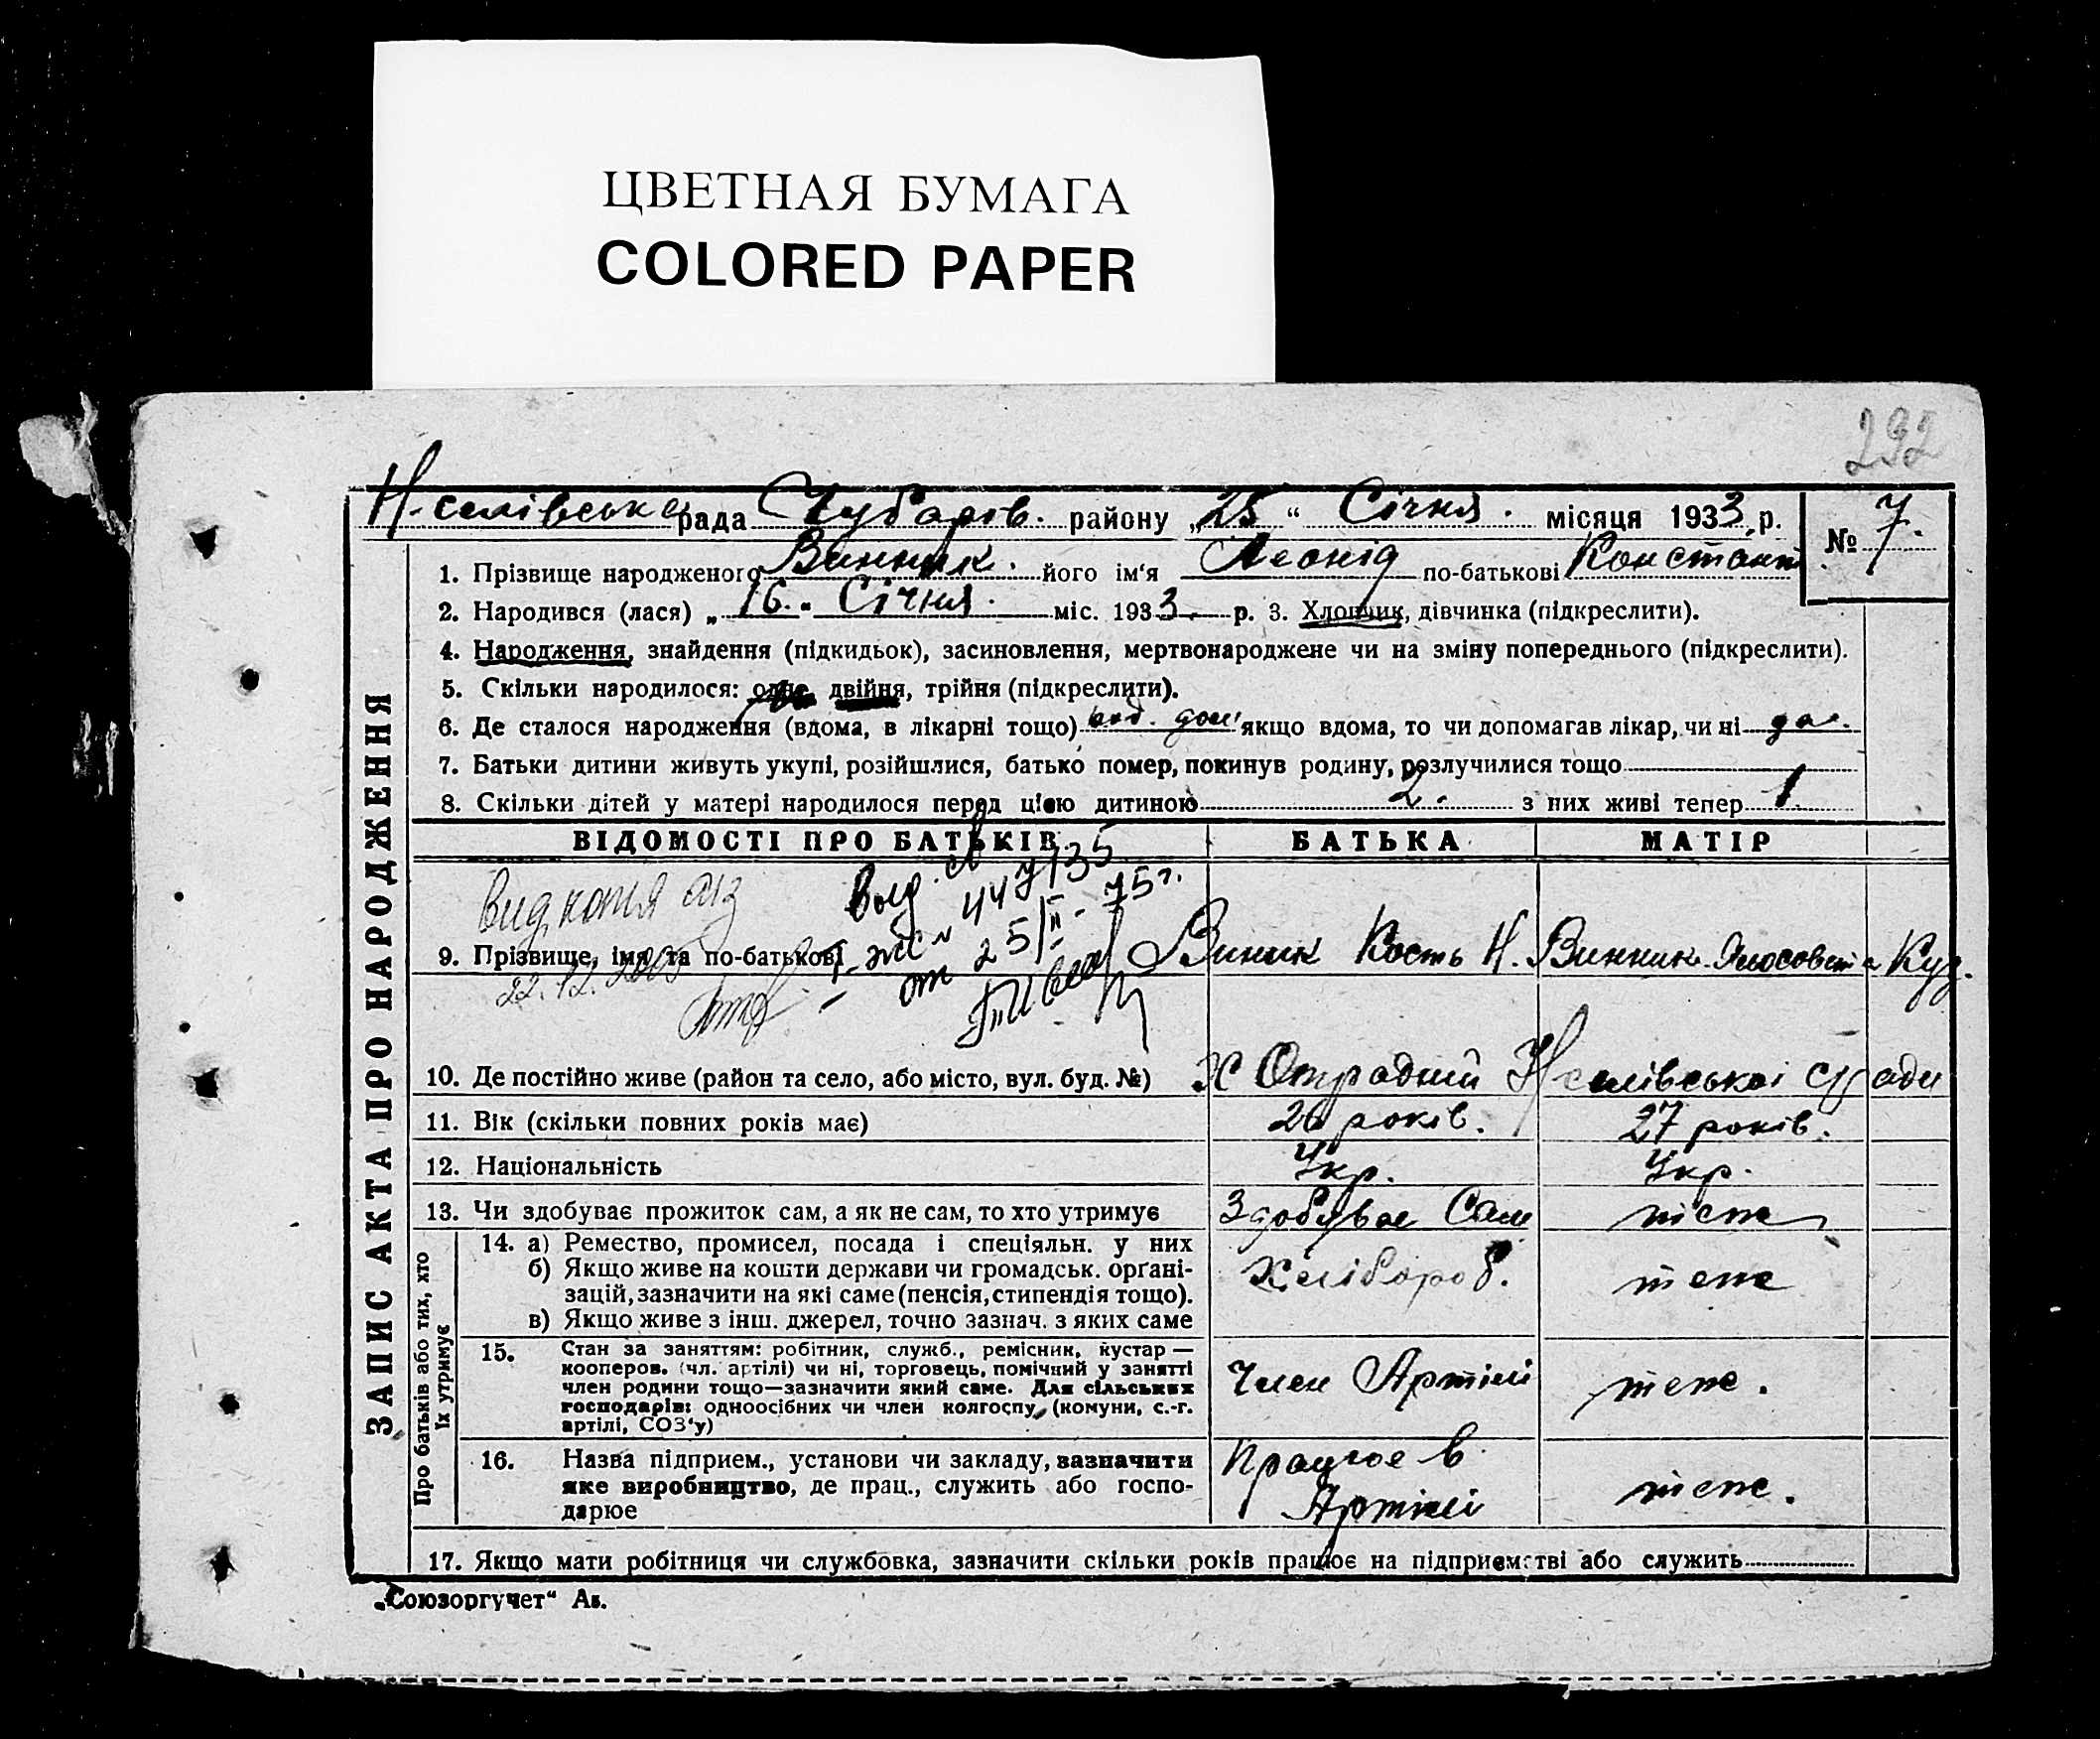 ЦВЕТНАЯ БУМАГА
COLORED PAPER
292
Н-селівська рада Чубарів. району „25“ Січня. місяця 1933 р. № 7.
1. Прізвище народженого Винник. його ім'я Леонід по-батькові Констант.
2. Народився (лася) „16.“ Січня. міс. 1933. р. 3. Хлопчик, дівчинка (підкреслити).
4. Народження, знайдення (підкидьок), засиновлення, мертвонароджене чи на зміну попереднього (підкреслити).
5. Скільки народилося: одне двійня, трійня (підкреслити).
6. Де сталося народження (вдома, в лікарні тощо) дом якщо вдома, то чи допомагав лікар, чи ні да.
7. Батьки дитини живуть укупі, розійшлися, батько помер, покинув родину, розлучилися тощо
8. Скільки дітей у матері народилося перед цією дитиною 2. з них живі тепер 1.
ЗАПИС АКТА ПРО НАРОДЖЕННЯ
ВІДОМОСТІ ПРО БАТЬКІВ БАТЬКА МАТІР
Вид. копія
22.12.2005
Выд. св
447135
от 25/II-75 г.
9. Прізвище, імя та по-батькові Виник Кость Н. Винник Куз.
10. Де постійно живе (район та село, або місто, вул. буд. №) Х Отрадний Н селівської Ради
11. Вік (скільки повних років має) 26 років. 27 років.
12. Національність Укр. Укр.
13. Чи здобуває прожиток сам, а як не сам, то хто утримує Здобуває Сам теж
Про батьків або тих, хто їх утримує
14. а) Ремество, промисел, посада і спеціяльн. у них Хлібороб. теж
б) Якщо живе на кошти держави чи громадськ. орґані-
зацій, зазначити на які саме (пенсія, стипендія тощо).
в) Якщо живе з інш. джерел, точно зазнач. з яких саме
15. Стан за заняттям: робітник, служб., ремісник, кустар —
кооперов. (чл. артілі) чи ні, торговець, помічний у занятті
член родини тощо—зазначити який саме. Для сільських
господарів: одноосібних чи член колгоспу, (комуни, с.-г.
артілі, СОЗ'у)
Член Артілі теж.
16. Назва підприєм., установи чи закладу, вазначити
яке виробництво, де прац., служить або госпо-
дарює
Працює в
Артілі теж.
17. Якщо мати робітниця чи службовка, зазначити скільки років працює на підприємстві або служить
„Союзоргучет“ Ав.